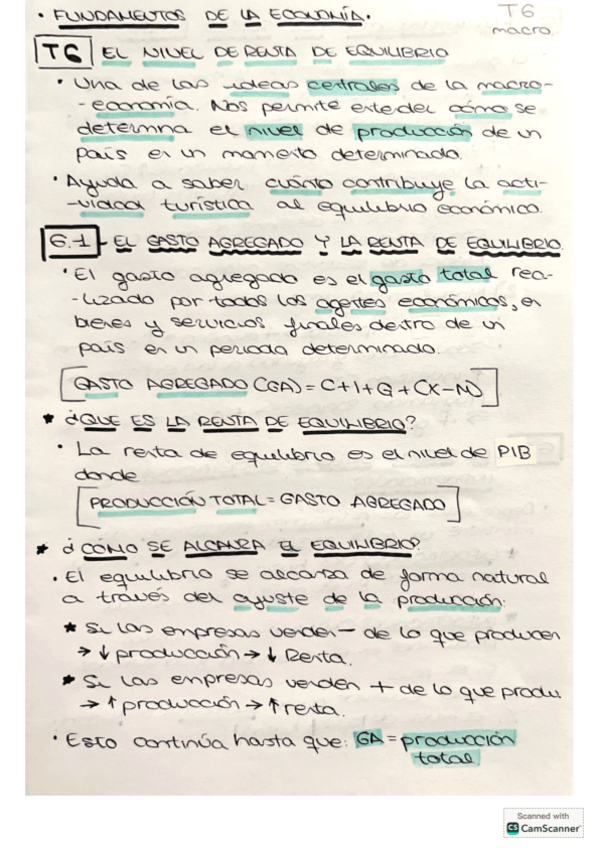 • FUNDAMENTOS DE LA ECONOMÍA.
T6
macro
T6 EL NIVEL DE RENTA DE EQUILIBRIO
• Una de las ideas centrales de la macro-
-economía. Nos permite entender cómo se
determina el nivel de producción de un
país en un momento determinado.
• Ayuda a saber cuánto contribuye la acti-
-vidad turística al equilibrio económico.
6.1 - EL GASTO AGREGADO Y LA RENTA DE EQUILIBRIO.
• El gasto agregado es el gasto total rea-
-lizado por todos los agentes económicos, en
bienes y servicios finales dentro de un
país en un periodo determinado.
[GASTO AGREGADO (GA) = C+I+G+(X-N)]
★ ¿QUE ES LA RENTA DE EQUILIBRIO?
• La renta de equilibrio es el nivel de PIB
donde
[PRODUCCIÓN TOTAL = GASTO AGREGADO]
★ ¿CÓMO SE ALCANZA EL EQUILIBRIO?
• El equilibrio se alcanza de forma natural
a través del ajuste de la producción:
★ Si las empresas venden - de lo que producen
→ ↓ producción → ↓ Renta.
★ Si las empresas venden + de lo que produ
→ ↑ producción → ↑ renta.
• Esto continúa hasta que: GA = producción
total
Scanned with
CS CamScanner